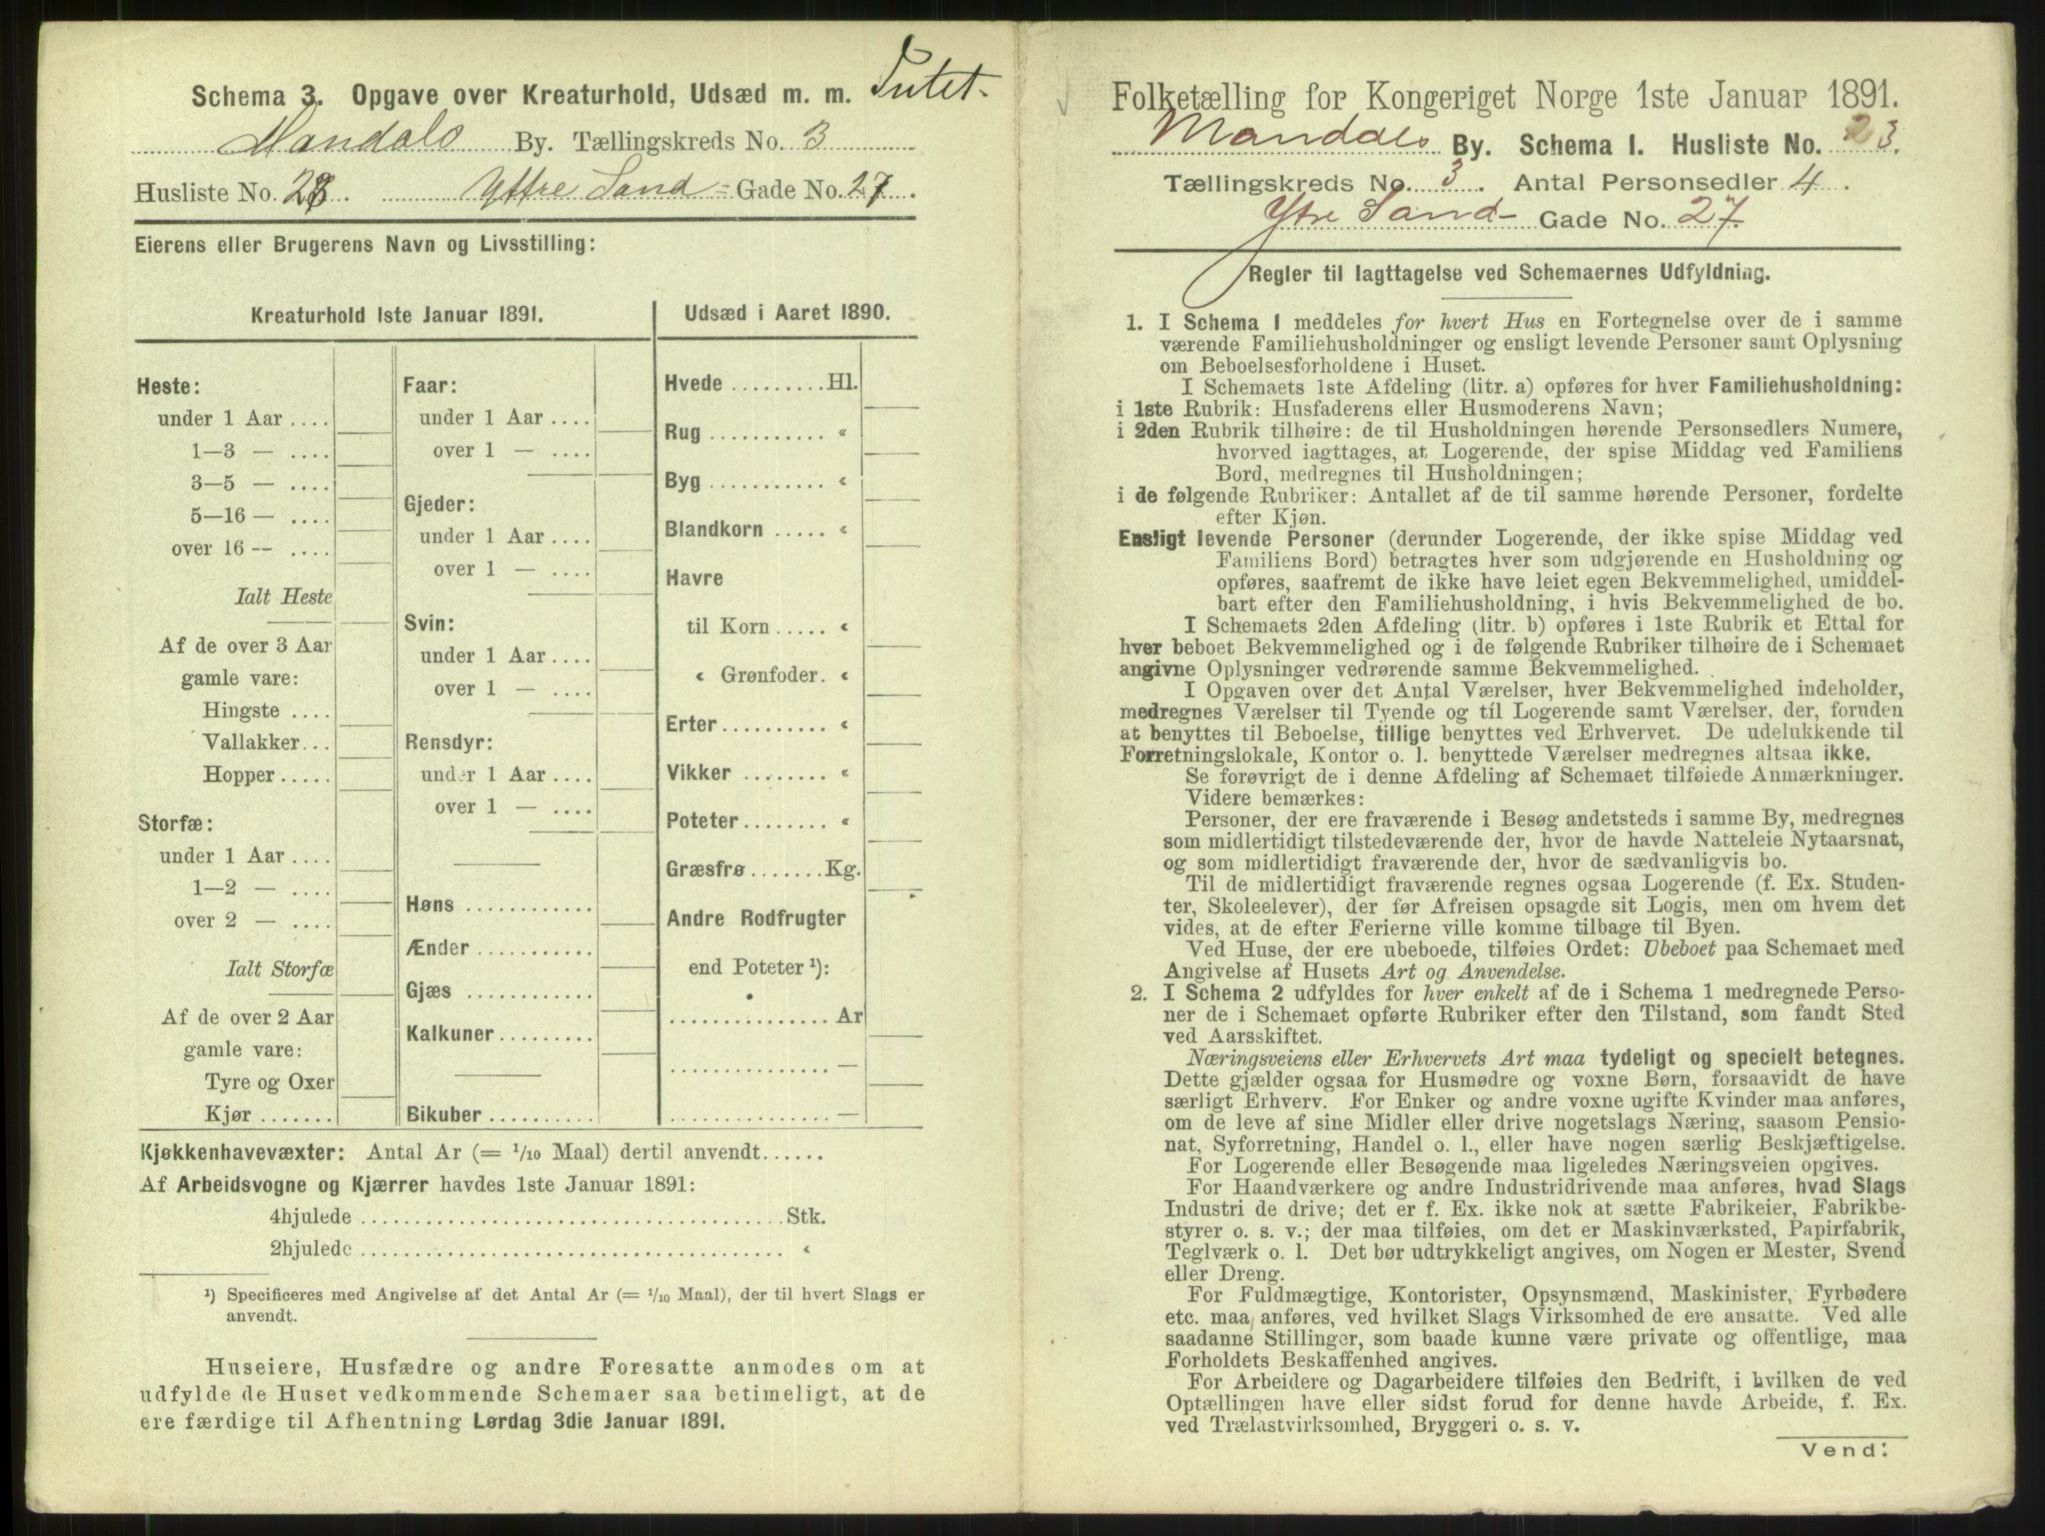 Schema 3. Opgave over Kreaturhold, Udsæd m. m. Intet.
Mandals By. Tællingskreds No. 3
Husliste No. 23. Yttre Sand = Gade No. 27.
Eierens eller Brugerens Navn og Livsstilling:
Kreaturhold 1ste Januar 1891.
Heste:
under 1 Aar ....
1—3 — ....
3—5 — ....
5—16 — ....
over 16 — ....
Ialt Heste
Af de over 3 Aar
gamle vare:
Hingste ....
Vallakker...
Hopper.....
Storfæ:
under 1 Aar ....
1—2 — ....
over 2 — ....
Ialt Storfæ
Af de over 2 Aar
gamle vare:
Tyre og Oxer
Kjør.......
Faar:
under 1 Aar ....
over 1 — ....
Gjeder:
under 1 Aar ....
over 1 — ....
Svin:
under 1 Aar ....
over 1 — ....
Rensdyr:
under 1 Aar ....
over 1 — ....
Høns ............
Ænder ...........
Gjæs ............
Kalkuner.........
Bikuber ..........
Udsæd i Aaret 1890.
Hvede .........Hl.
Rug ........... «
Byg ........... «
Blandkorn ..... «
Havre
til Korn ..... «
« Grønfoder. «
Erter .......... «
Vikker ........ «
Poteter........ «
Græsfrø.......Kg.
Andre Rodfrugter
end Poteter ¹):
............... Ar
............... —
............... —
Kjøkkenhavevæxter: Antal Ar (= 1/10 Maal) dertil anvendt......
Af Arbeidsvogne og Kjærrer havdes 1ste Januar 1891:
4hjulede ........................................ Stk.
2hjulede ........................................ «
¹) Specificeres med Angivelse af det Antal Ar (= 1/10 Maal), der til hvert Slags er
anvendt.
Huseiere, Husfædre og andre Foresatte anmodes om at
udfylde de Huset vedkommende Schemaer saa betimeligt, at de
ere færdige til Afhentning Lørdag 3die Januar 1891.
Folketælling for Kongeriget Norge 1ste Januar 1891.
Mandals By. Schema I. Husliste No. 23.
Tællingskreds No. 3. Antal Personsedler 4.
Ytre Sand- Gade No. 27.
Regler til Iagttagelse ved Schemaernes Udfyldning.
1. I Schema 1 meddeles for hvert Hus en Fortegnelse over de i samme
værende Familiehusholdninger og ensligt levende Personer samt Oplysning
om Beboelsesforholdene i Huset.
I Schemaets 1ste Afdeling (litr. a) opføres for hver Familiehusholdning:
i 1ste Rubrik: Husfaderens eller Husmoderens Navn;
i 2den Rubrik tilhøire: de til Husholdningen hørende Personsedlers Numere,
hvorved iagttages, at Logerende, der spise Middag ved Familiens
Bord, medregnes til Husholdningen;
i de følgende Rubriker: Antallet af de til samme hørende Personer, fordelte
efter Kjøn.
Ensligt levende Personer (derunder Logerende, der ikke spise Middag ved
Familiens Bord) betragtes hver som udgjørende en Husholdning og
opføres, saafremt de ikke have leiet egen Bekvemmelighed, umiddel-
bart efter den Familiehusholdning, i hvis Bekvemmelighed de bo.
I Schemaets 2den Afdeling (litr. b) opføres i 1ste Rubrik et Ettal for
hver beboet Bekvemmelighed og i de følgende Rubriker tilhøire de i Schemaet
angivne Oplysninger vedrørende samme Bekvemmelighed.
I Opgaven over det Antal Værelser, hver Bekvemmelighed indeholder,
medregnes Værelser til Tyende og til Logerende samt Værelser, der, foruden
at benyttes til Beboelse, tillige benyttes ved Erhvervet. De udelukkende til
Forretningslokale, Kontor o. l. benyttede Værelser medregnes altsaa ikke.
Se forøvrigt de i denne Afdeling af Schemaet tilføiede Anmærkninger.
Videre bemærkes:
Personer, der ere fraværende i Besøg andetsteds i samme By, medregnes
som midlertidigt tilstedeværende der, hvor de havde Natteleie Nytaarsnat,
og som midlertidigt fraværende der, hvor de sædvanligvis bo.
Til de midlertidigt fraværende regnes ogsaa Logerende (f. Ex. Studen-
ter, Skoleelever), der før Afreisen opsagde sit Logis, men om hvem det
vides, at de efter Ferierne ville komme tilbage til Byen.
Ved Huse, der ere ubeboede, tilføies Ordet: Ubeboet paa Schemaet med
Angivelse af Husets Art og Anvendelse.
2. I Schema 2 udfyldes for hver enkelt af de i Schema 1 medregnede Perso-
ner de i Schemaet opførte Rubriker efter den Tilstand, som fandt Sted
ved Aarsskiftet.
Næringsveiens eller Erhvervets Art maa tydeligt og specielt betegnes.
Dette gjælder ogsaa for Husmødre og voxne Børn, forsaavidt de have
særligt Erhverv. For Enker og andre voxne ugifte Kvinder maa anføres,
om de leve af sine Midler eller drive nogetslags Næring, saasom Pensio-
nat, Syforretning, Handel o. l., eller have nogen særlig Beskjæftigelse.
For Logerende eller Besøgende maa ligeledes Næringsveien opgives.
For Haandværkere og andre Industridrivende maa anføres, hvad Slags
Industri de drive; det er f. Ex. ikke nok at sætte Fabrikeier, Fabrikbe-
styrer o. s. v.; der maa tilføies, om det er Maskinværksted, Papirfabrik,
Teglværk o. l. Det bør udtrykkeligt angives, om Nogen er Mester, Svend
eller Dreng.
For Fuldmægtige, Kontorister, Opsynsmænd, Maskinister, Fyrbødere
etc. maa anføres, ved hvilket Slags Virksomhed de ere ansatte. Ved alle
saadanne Stillinger, som baade kunne være private og offentlige, maa
Forholdets Beskaffenhed angives.
For Arbeidere og Dagarbeidere tilføies den Bedrift, i hvilken de ved
Optællingen have eller sidst forud for denne havde Arbeide, f. Ex.
ved Trælastvirksomhed, Bryggeri o. s. v.
Vend: